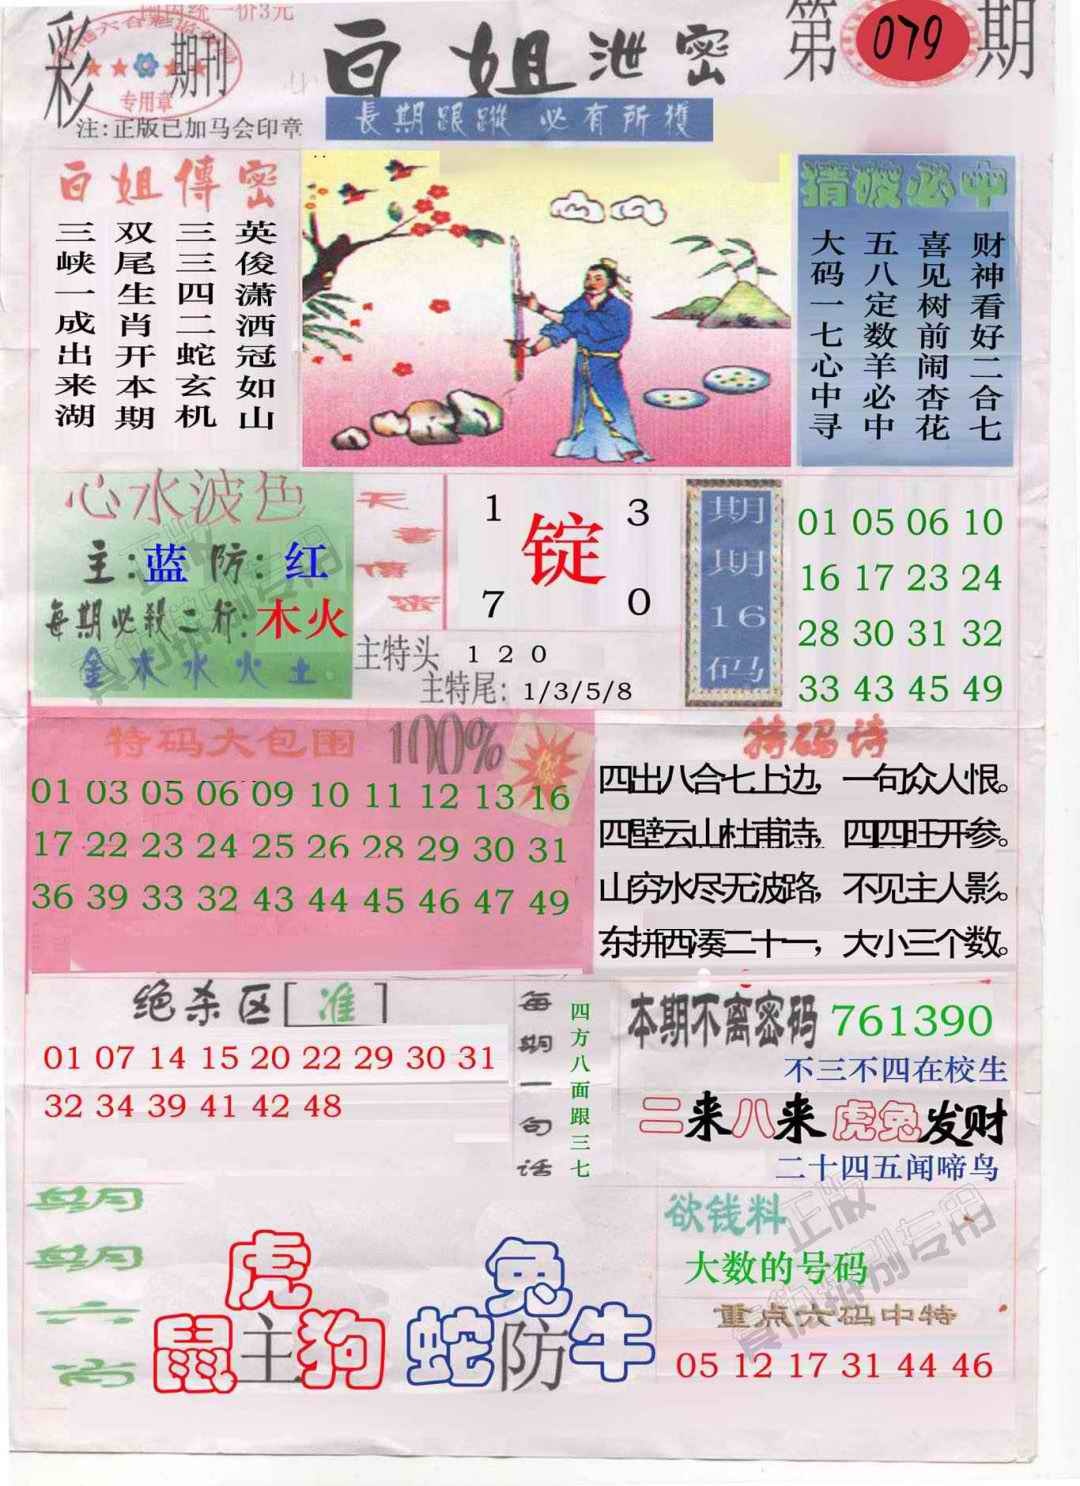 彩
期刊
专用章
注:正版已加马会印章
白姐泄密
第079期
長期跟蹤 必有所獲
白姐傳密
英俊潇洒冠如山
三三四二蛇玄机
双尾生肖开本期
三峡一成出来湖
猜破必中
财神看好二合七
喜见树前闹杏花
五八定数羊必中
大码一七心中寻
心水波色
主:蓝 防:红
每期必殺二行:木火
金木水火土
1 3
锭
7 0
主特头 1 2 0
主特尾: 1/3/5/8
期期16码
01 05 06 10
16 17 23 24
28 30 31 32
33 43 45 49
特码大包围 100%
01 03 05 06 09 10 11 12 13 16
17 22 23 24 25 26 28 29 30 31
36 39 33 32 43 44 45 46 47 49
特码诗
四出八合七上边，一句众人恨。
四壁云山杜甫诗，四四旺开参。
山穷水尽无波路，不见主人影。
东拼西凑二十一，大小三个数。
绝杀区[准]
01 07 14 15 20 22 29 30 31
32 34 39 41 42 48
每期一句话
四方八面跟三七
本期不离密码 761390
不三不四在校生
二来八来 虎兔发财
二十四五闻啼鸟
虎
鼠主狗
兔
蛇防牛
欲钱料
大数的号码
重点六码中特
05 12 17 31 44 46